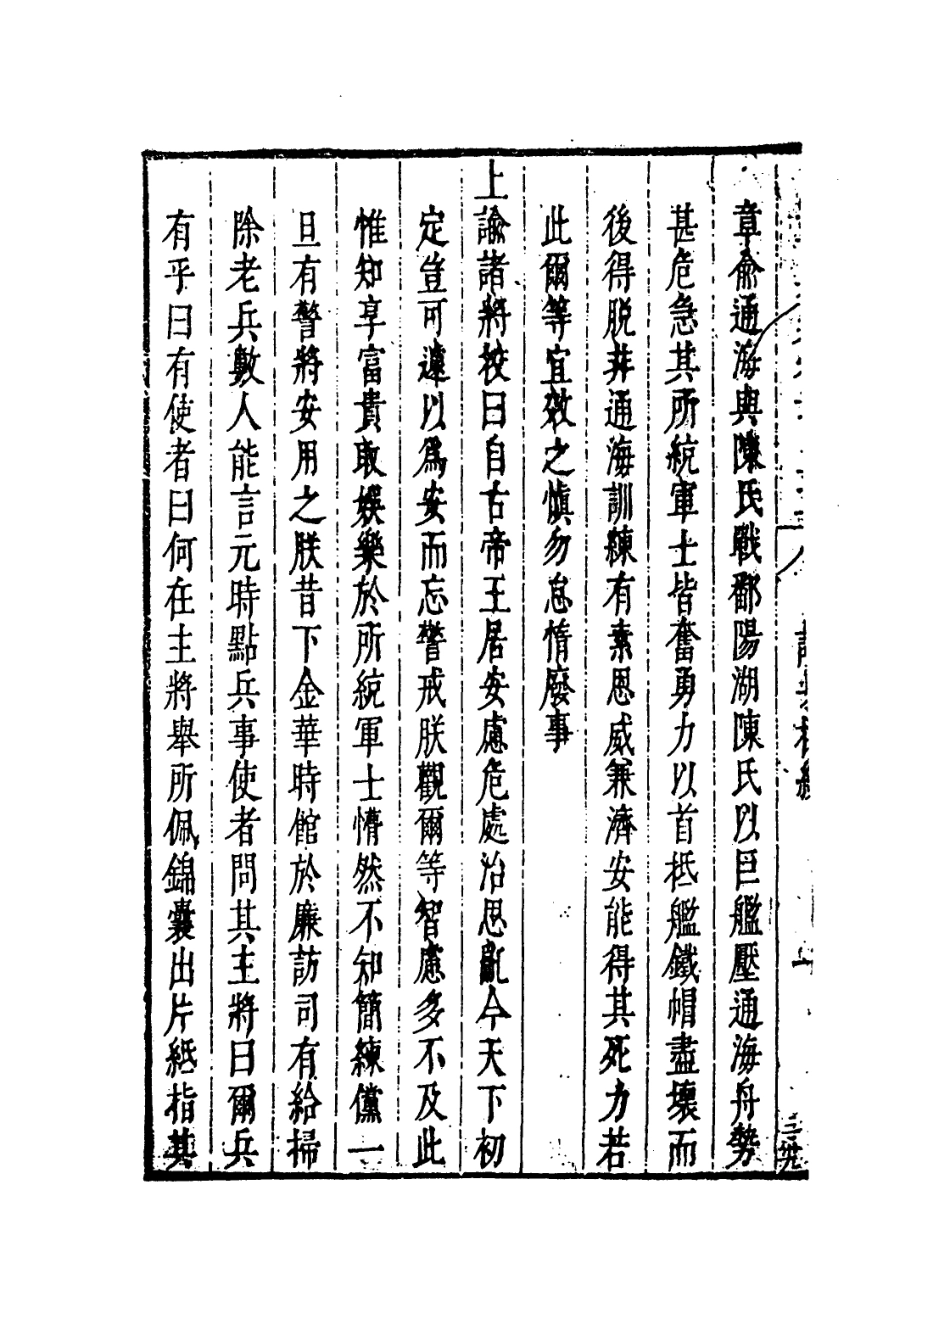 章俞通海與陳氏戰鄱陽湖陳氏以巨艦壓通海舟勢
甚危急其所統軍士皆奮勇力以首柢艦鐵帽盡壞而
後得脫非通海訓練有素恩威兼濟安能得其死力若
此爾等宜效之慎勿怠惰廢事
上諭諸將校曰自古帝王居安慮危處治思亂今天下初
定豈可遽以爲安而忘警戒朕觀爾等智慮多不及此
惟知享富貴取娛樂於所統軍士懵然不知簡練儻一
旦有警將安用之朕昔下金華時館於廉訪司有給掃
除老兵數人能言元時點兵事使者問其主將曰爾兵
有乎曰有使者曰何在主將舉所佩錦囊出片紙指其